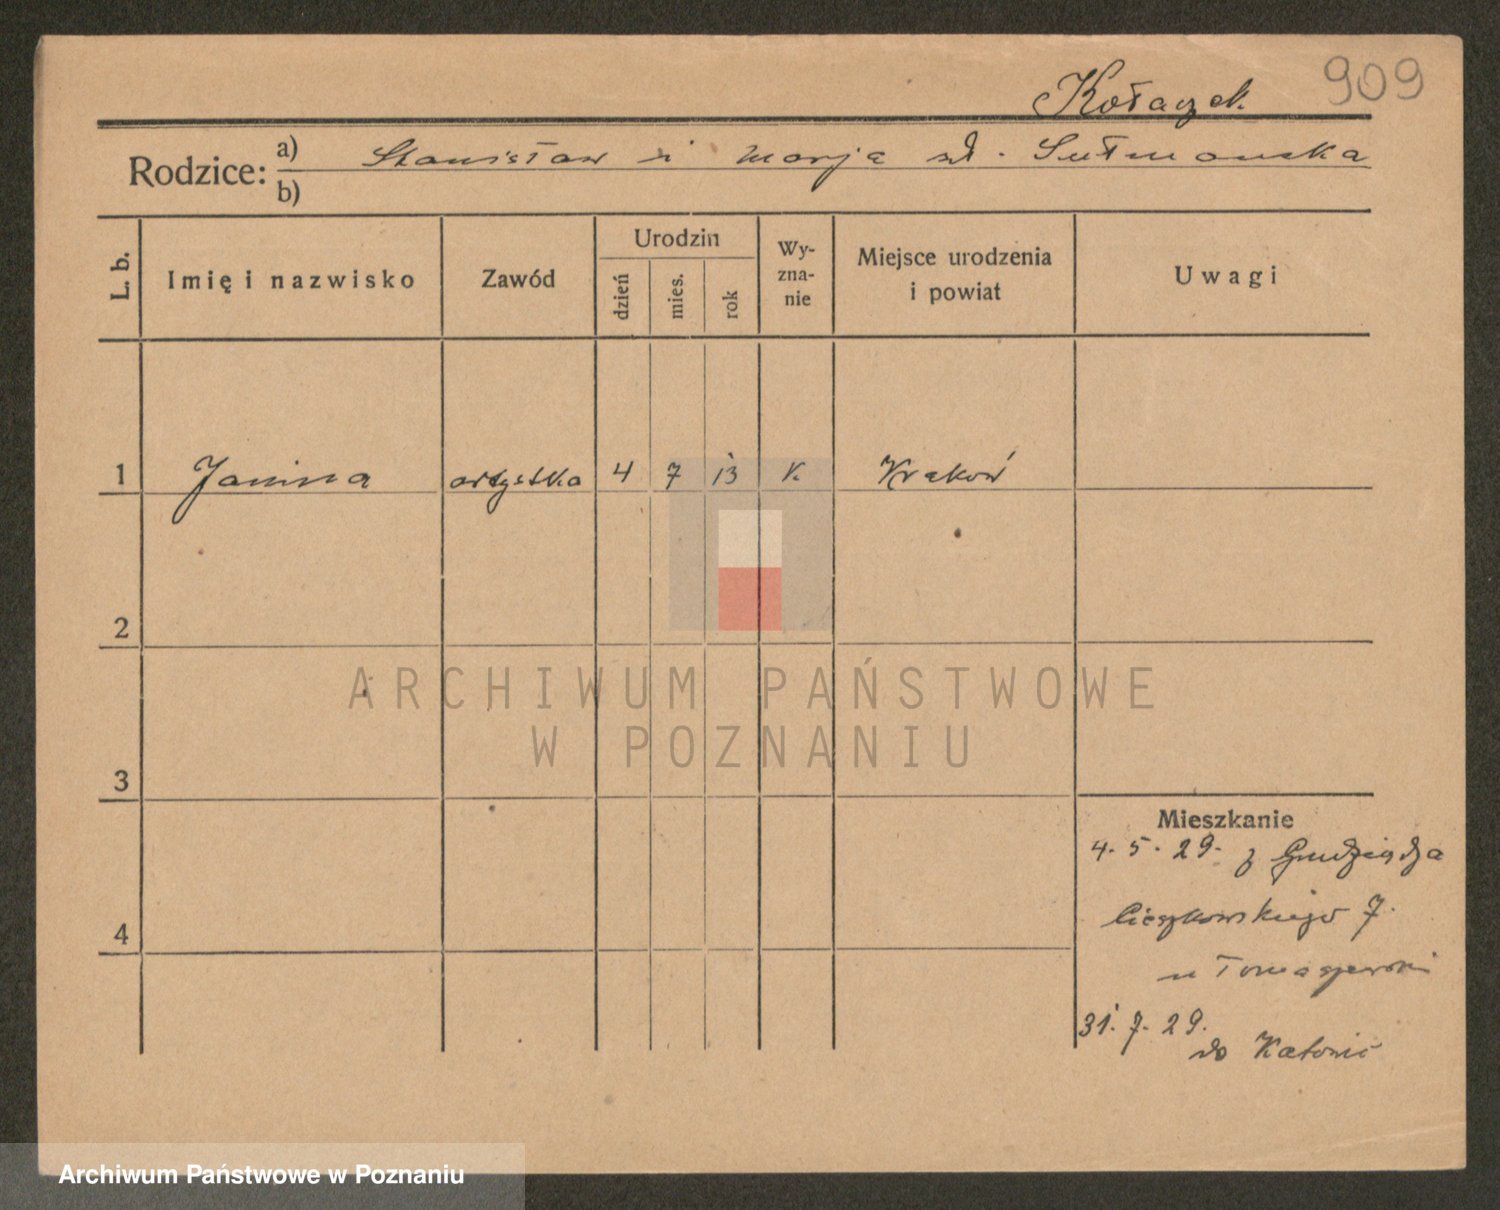 Kołaczek 909
Rodzice: a) Stanisław i Marja
b)
L. b. Imię i nazwisko Zawód Urodzin dzień mies. rok Wy-zna-nie Miejsce urodzenia i powiat Uwagi
1 Janina artystka 4 7 13 K. Kraków
2
ARCHIWUM PAŃSTWOWE
W POZNANIU
3
Mieszkanie
4. 5. 29. z Grudziądza
Cieszkowskiego 7.
4
u Tomaszewski
31. 7. 29.
do Katowic
Archiwum Państwowe w Poznaniu